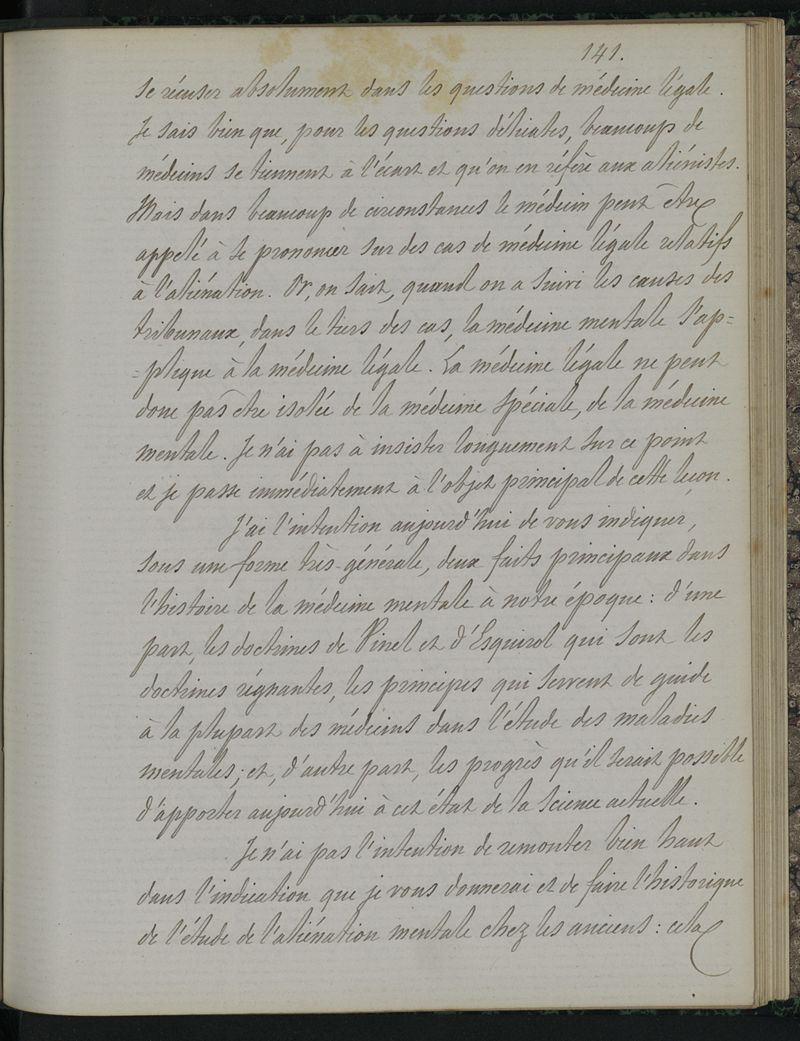 141.
se récuser absolument dans les questions de médecine légale.
Je sais bien que, pour les questions délicates, beaucoup de
médecins se tiennent à l'écart et qu'on en réfère aux aliénistes.
Mais dans beaucoup de circonstances le médecin peut être
appelé à se prononcer sur des cas de médecine légale relatifs
à l'aliénation. Or, on sait, quand on a suivi les causes des
tribunaux, dans le tiers des cas, la médecine mentale s'ap=
=plique à la médecine légale. La médecine légale ne peut
donc pas être isolée de la médecine spéciale, de la médecine
mentale. Je n'ai pas à insister longuement sur ce point
et je passe immédiatement à l'objet principal de cette leçon.
J'ai l'intention aujourd'hui de vous indiquer,
sous une forme très-générale, deux faits principaux dans
l'histoire de la médecine mentale à notre époque: d'une
part, les doctrines de Pinel et d'Esquirol qui sont les
doctrines régnantes, les principes qui servent de guide
à la plupart des médecins dans l'étude des maladies
mentales; et, d'autre part, les progrès qu'il serait possible
d'apporter aujourd'hui à cet état de la science actuelle.
Je n'ai pas l'intention de remonter bien haut
dans l'indication que je vous donnerai et de faire l'historique
de l'étude de l'aliénation mentale chez les anciens: cela